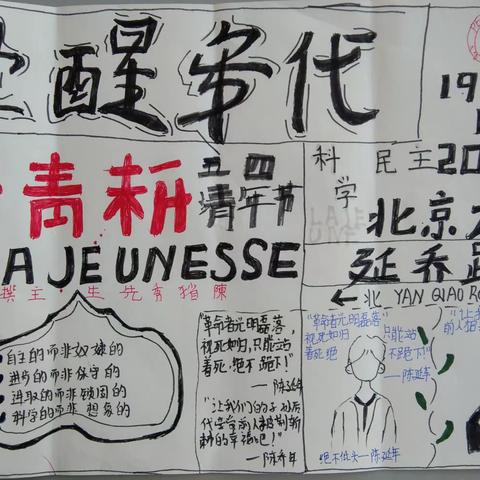 醒年代
19
青
五四
青年节
科学
民主
20
北京
A JEUNESSE
主·生先秀獨陳
延乔路
←北 YAN QIAO RO
自主的而非奴隶的
进步的而非保守的
进取的而非锁国的
科学的而非想象的
"革命者光明磊落,
视死如归,只能站
着死,绝不跪下!
——陈延年
"让我们的子孙后
代享受前人披荆斩
棘的幸福吧!
——陈乔年
"革命者光明磊落
视死如归
着死 绝
只能站
不跪下!"
——陈延年
"让我
前人披
绝不低头—陈延年